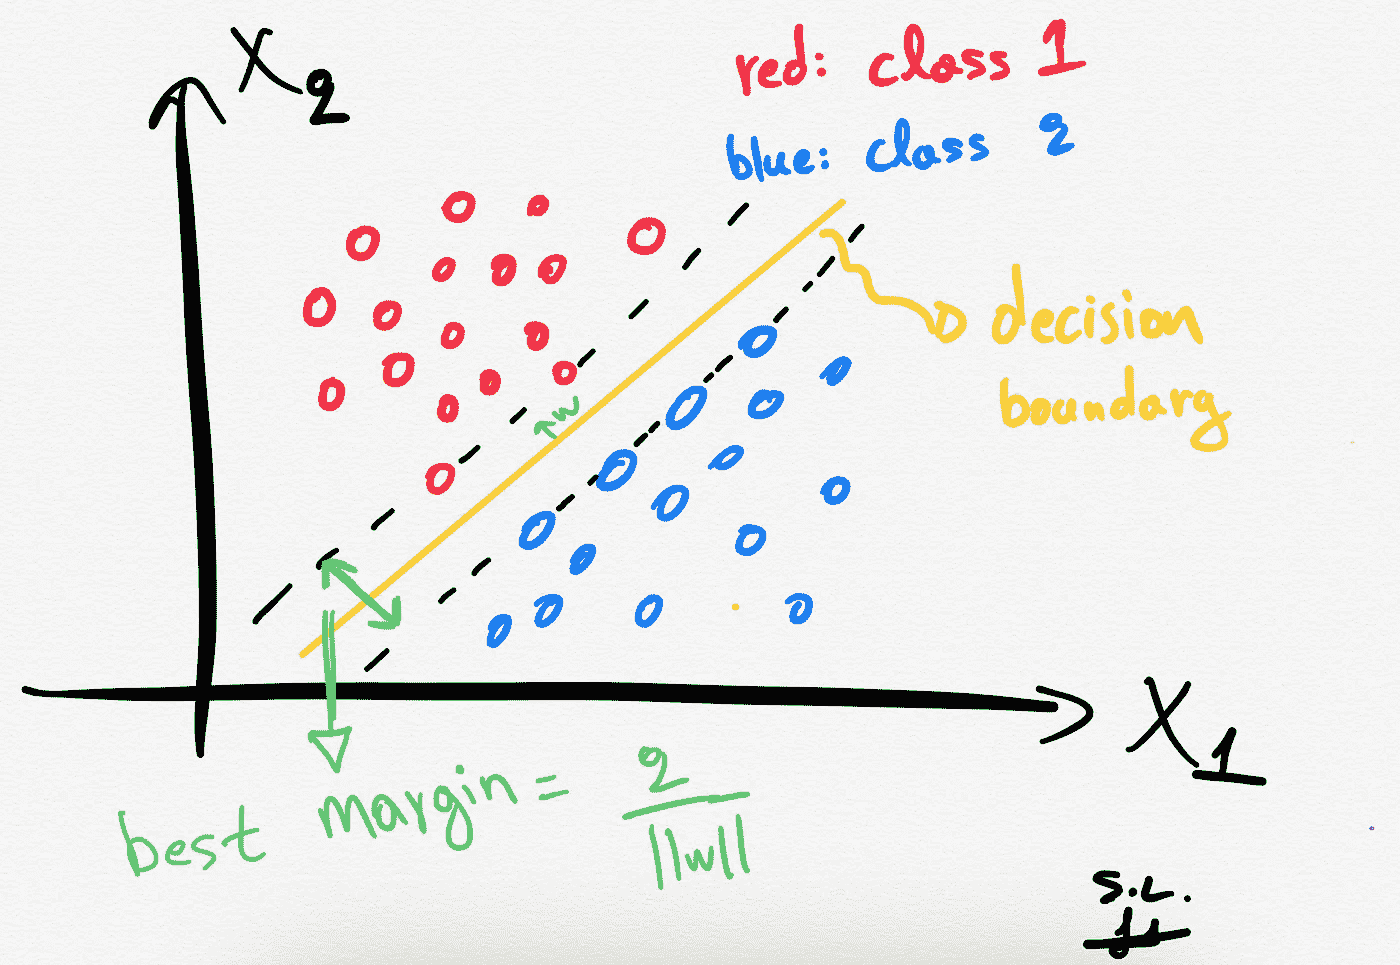 X2
red: class 1
blue: class 2
decision
boundary
w
X1
best margin = 2
||w||
S.L.